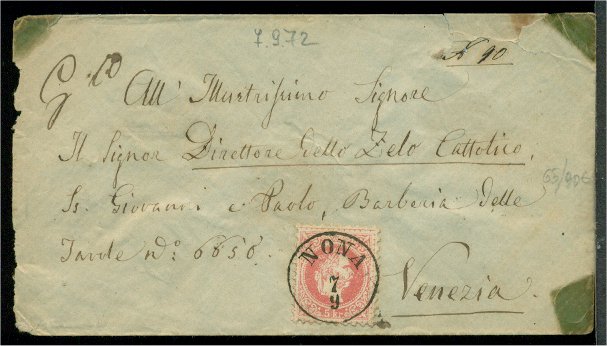 7.9.72
N 90
All' Illustrissimo Signore
Il Signor Direttore dello Zelo Cattolico,
Ss. Giovanni e Paolo, Barberia delle
Tavole No: 6656.
65/90€
NONA
7
9
Venezia.